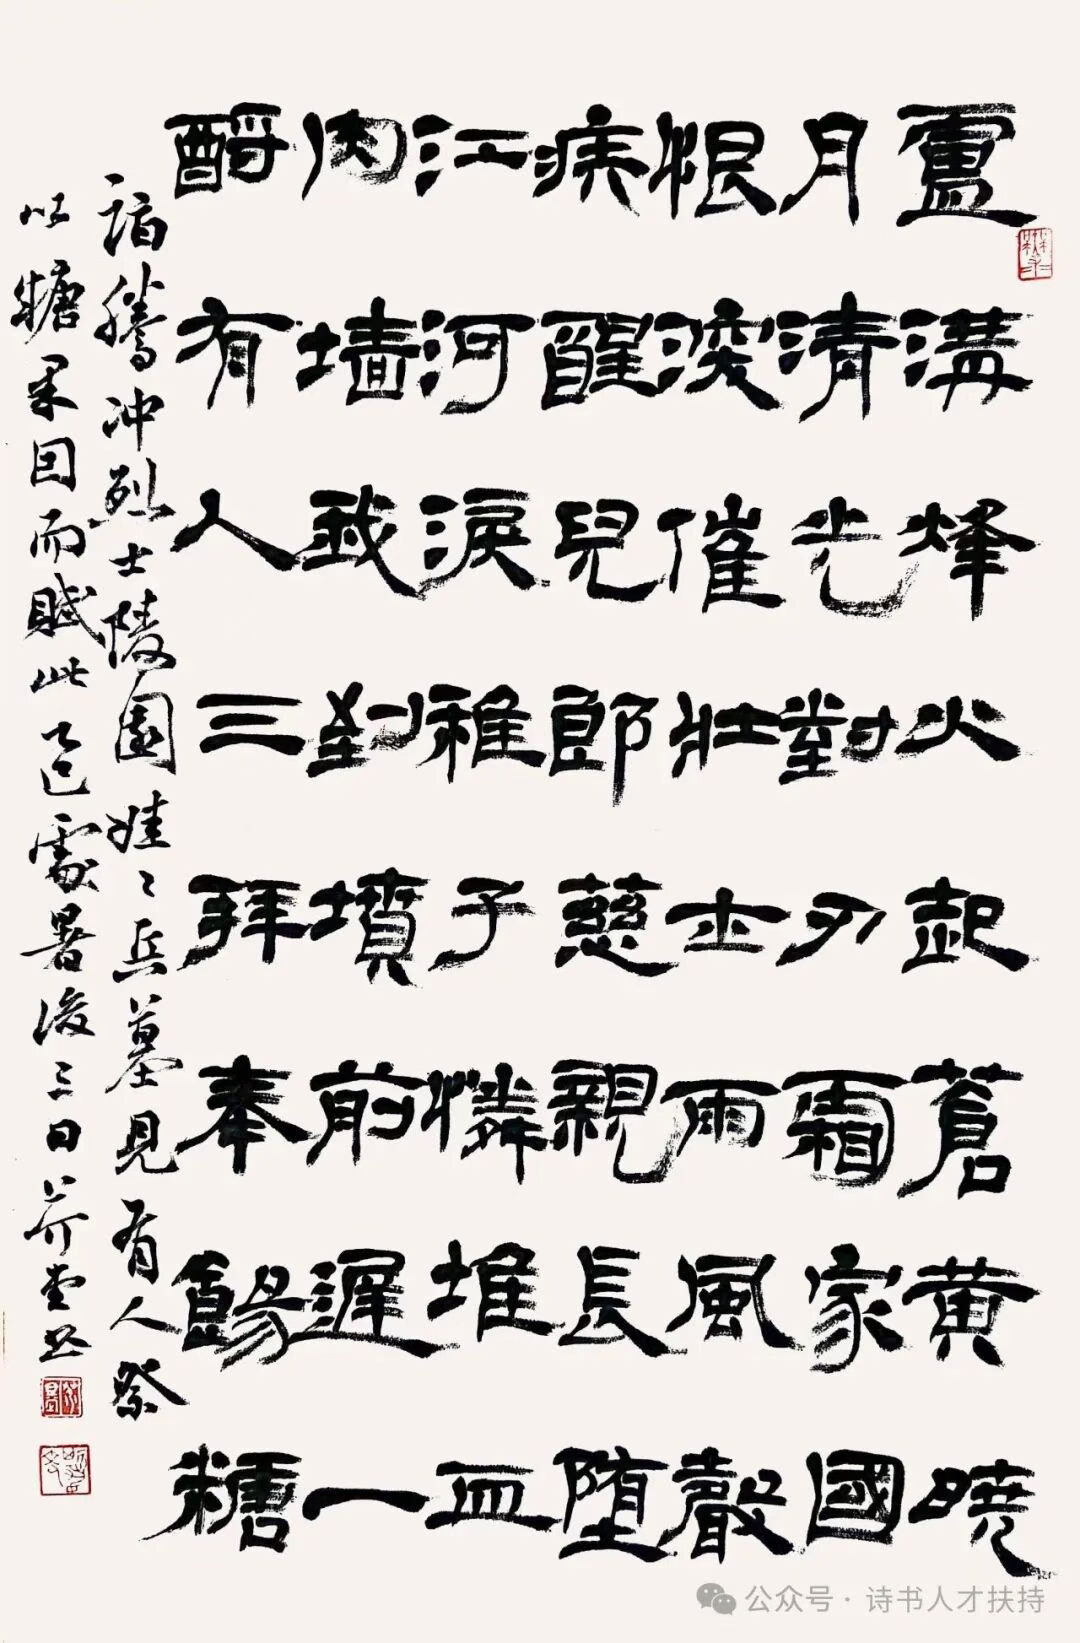 盧溝烽火起蒼黃曉
月清光對刃霜家國
恨深催壯士雨風聲
疾醒兒郎慈親長堕
江河淚稚子憐堆血
肉墙我到墳前遲一
酹有人三拜奉餳糖
詣騰冲烈士陵園娃〻兵墓見有人祭
以糖果因而賦此乙巳處暑後三日芥堂
公众号·诗书人才扶持